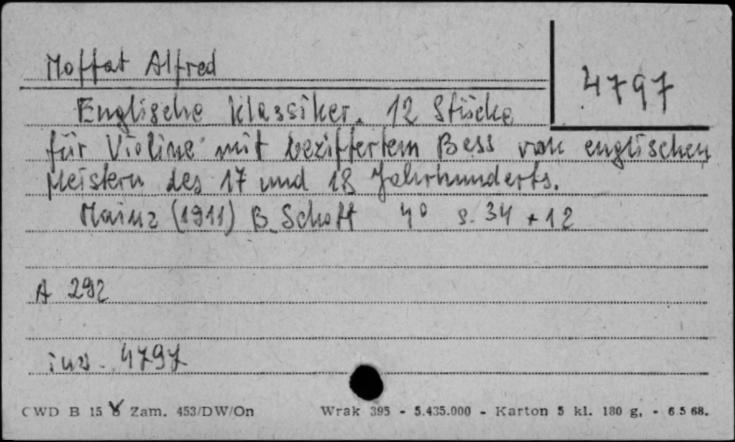 Moffat Alfred
4797
Englische Klassiker. 12 Stücke
für Violine mit beziffertem Bass von englischen
Meistern des 17 und 18 Jahrhunderts.
Mainz (1911) B. Schott 4° s. 34 + 12
A 292
inw. 4797
CWD B 15 Zam. 453/DW/On Wrak 395 - 5.435.000 - Karton 5 kl. 180 g. - 6 5 68.